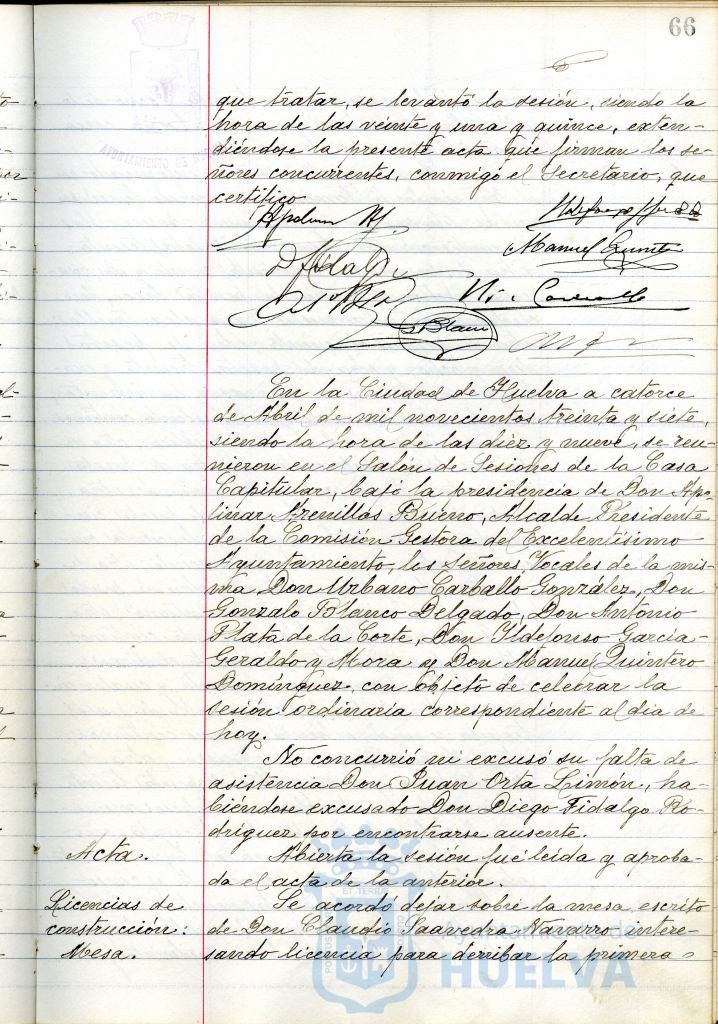 66
que tratar, se levantó la sesión, siendo la
hora de las veinte y una y quince, exten-
diéndose la presente acta que firman los se-
ñores concurrentes, conmigo el Secretario, que
certifico
Manuel Quintero
D Fidalgo
G Blanco
En la Ciudad de Huelva a catorce
de Abril de mil novecientos treinta y siete,
siendo la hora de las diez y nueve, se reu-
nieron en el Salón de Sesiones de la Casa
Capitular, bajo la presidencia de Don Apo-
linar Arenillas Bueno, Alcalde Presidente
de la Comisión Gestora del Excelentísimo
Ayuntamiento, los señores Vocales de la mis-
ma Don Urbano Carballo González, Don
Gonzalo Blanco Delgado, Don Antonio
Plata de la Corte, Don Ildefonso García-
Geraldo y Mora y Don Manuel Quintero
Domínguez, con objeto de celebrar la
sesión ordinaria correspondiente al dia de
hoy.
No concurrió ni excusó su falta de
asistencia Don Juan Orta Limón, ha-
biéndose excusado Don Diego Fidalgo Ro-
dríguez por encontrarse ausente.
Acta.
Abierta la sesión fué leída y aproba-
da el acta de la anterior.
Licencias de
construcción:
Mesa.
Se acordó dejar sobre la mesa escrito
de Don Claudio Saavedra Navarro intere-
sando licencia para derribar la primera
Ayuntamiento de
HUELVA